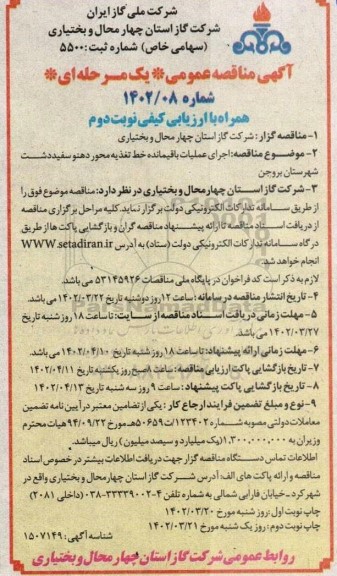 شرکت ملی گاز ایران
شرکت گاز استان چهار محال و بختیاری
(سهامی خاص) شماره ثبت: ۵۵۰۰
آگهی مناقصه عمومی *یک مرحله ای*
شماره ۱۴۰۲/۰۸
همراه با ارزیابی کیفی نوبت دوم
۱- مناقصه گزار: شرکت گاز استان چهار محال و بختیاری
۲- موضوع مناقصه: اجرای عملیات باقیمانده خط تغذیه محور دهنو سفیددشت
شهرستان بروجن
۳- شرکت گاز استان چهارمحال و بختیاری در نظر دارد: مناقصه موضوع فوق را
از طریق سامانه تدارکات الکترونیکی دولت برگزار نماید. کلیه مراحل برگزاری مناقصه
از دریافت اسناد مناقصه تا ارائه پیشنهاد مناقصه گران و بازگشایی پاکت ها از طریق
درگاه سامانه تدارکات الکترونیکی دولت (ستاد) به آدرس WWW.setadiran.ir
انجام خواهد شد.
لازم به ذکر است کد فراخوان در پایگاه ملی مناقصات ۵۳۱۴۵۹۲۶ می باشد.
۴- تاریخ انتشار مناقصه در سامانه: ساعت ۱۲ روز دوشنبه تاریخ ۱۴۰۲/۰۳/۲۲ می باشد.
۵- مهلت زمانی دریافت اسناد مناقصه از سایت: تا ساعت ۱۸ روز شنبه تاریخ
۱۴۰۲/۰۳/۲۷ می باشد.
۶- مهلت زمانی ارائه پیشنهاد: تا ساعت ۱۸ روز شنبه تاریخ ۱۴۰۲/۰۴/۱۰ می باشد.
۷- تاریخ بازگشایی پاکت ارزیابی مناقصه: ساعت ۸ صبح روز یکشنبه تاریخ ۱۴۰۲/۰۴/۱۱
۸- تاریخ بازگشایی پاکت پیشنهاد: ساعت ۹ روز سه شنبه تاریخ ۱۴۰۲/۰۴/۱۳
۹- نوع و مبلغ تضمین فرایند ارجاع کار: یکی از تضامین معتبر در آیین نامه تضمین
معاملات دولتی مصوبه شماره ۱۲۳۴۰۲/ت۵۰۶۵۹ه مورخ ۹۴/۰۹/۲۲ هیات محترم
وزیران به ۱.۳۰۰.۰۰۰.۰۰۰ (یک میلیارد و سیصد میلیون) ریال میباشد.
اطلاعات تماس دستگاه مناقصه گزار جهت دریافت اطلاعات بیشتر در خصوص اسناد
مناقصه و ارائه پاکت های الف: آدرس شرکت گاز استان چهارمحال و بختیاری واقع در
شهرکرد- خیابان فارابی شمالی به شماره تلفن ۴-۳۳۳۳۹۰۰۲-۰۳۸ (داخلی ۲۰۸۱)
چاپ نوبت اول: روز شنبه مورخ ۱۴۰۲/۰۳/۲۰
چاپ نوبت دوم: روز یک شنبه مورخ ۱۴۰۲/۰۳/۲۱
شناسه آگهی: ۱۵۰۷۱۴۹
روابط عمومی شرکت گاز استان چهار محال و بختیاری